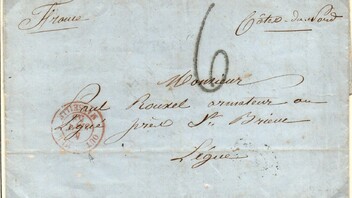 France
Côtes-du-Nord
6
Monsieur
Paul Rouxel armateur au
Légué près St. Brieuc
Légué